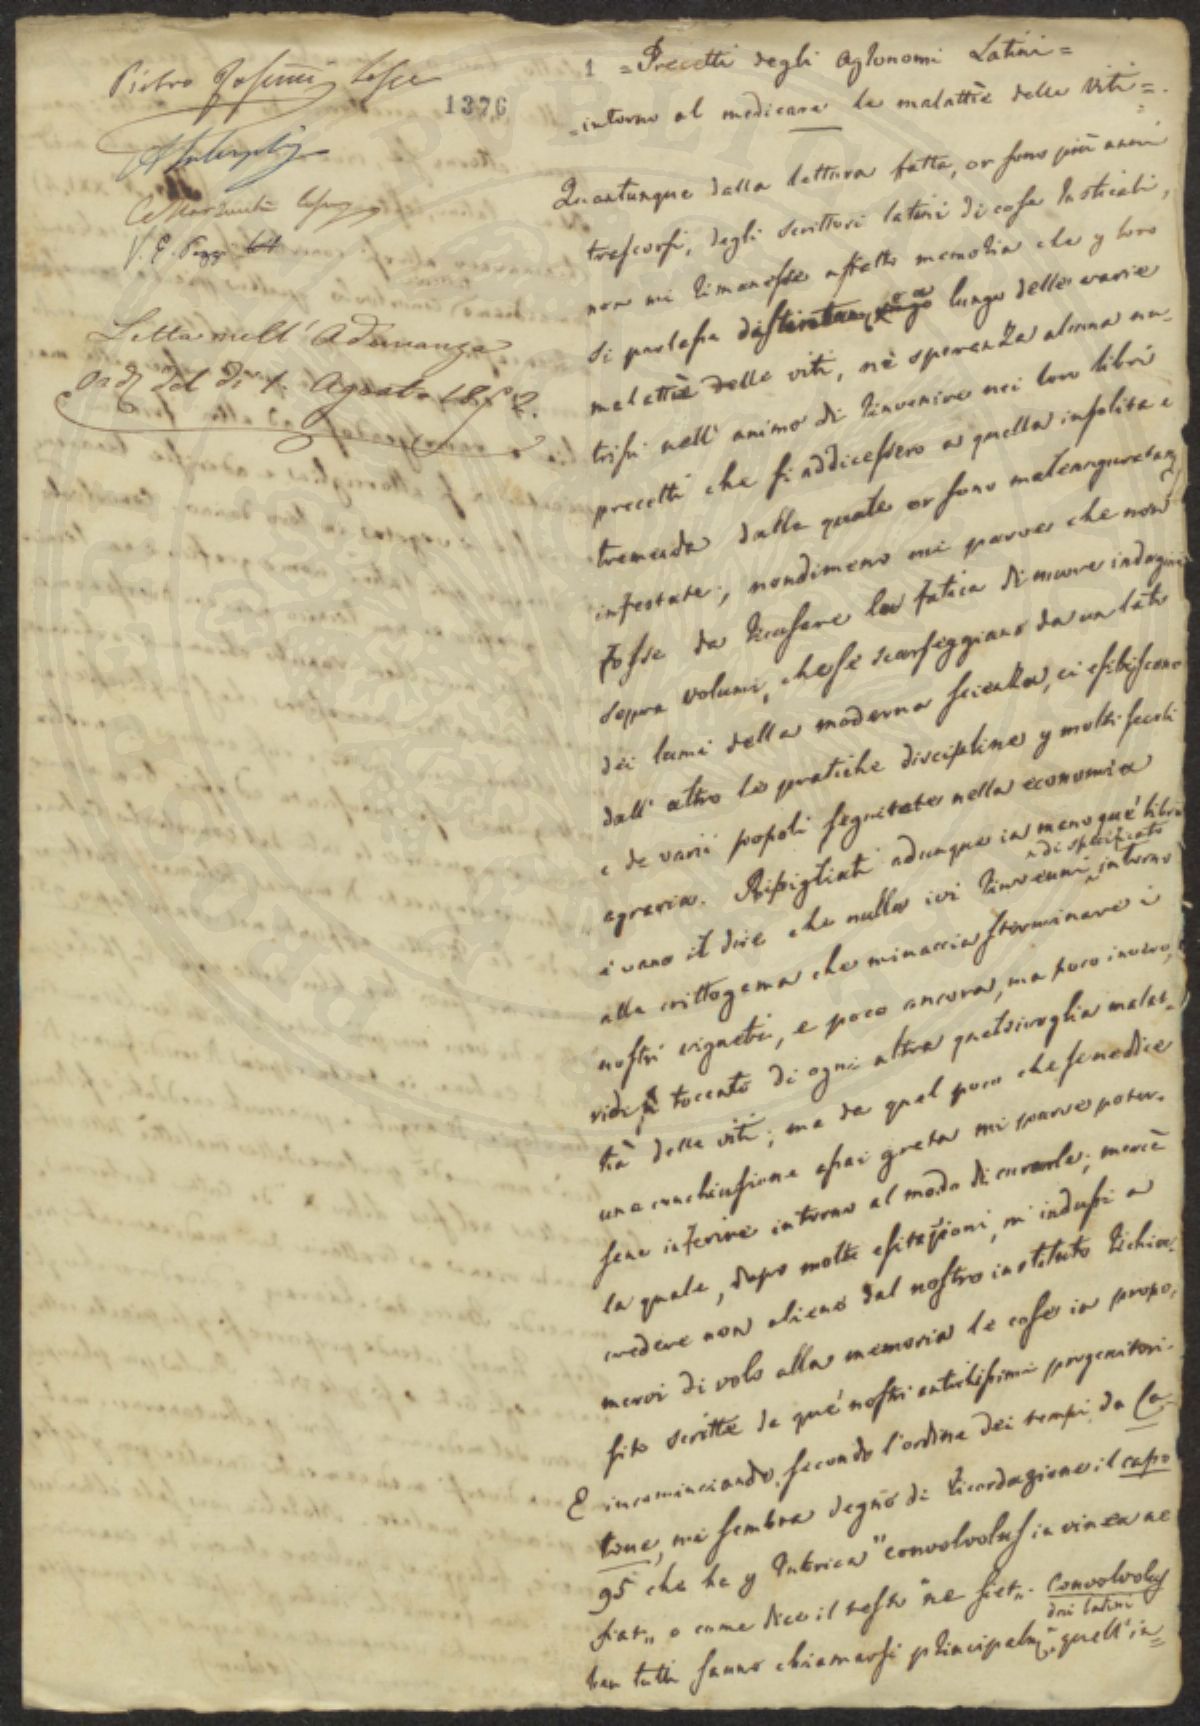 Pietro
1376
V. E. Poggi
Letta nell' Adunanza
ord. del dì 1. Agosto 1852.
1 = Precetti degli Agronomi Latini =
= intorno al medicare le malattie delle Viti =.
Quantunque dalla lettura fatta, or sono più anni
trascorsi, degli scrittori latini di cose rusticali,
non mi rimanesse affatto memoria che p loro
si parlasse lunga delle varie
malattie delle viti, nè speranza alcuna nu-
trissi nell' animo di rinvenire nei loro libri
precetti che si addicessero a quella insolita e
tremenda dalla quale or sono malauguratam
infestate; nondimeno mi parve che non
fosse da ricusare la fatica di nuove indagini
sopra volumi, che se scarseggiano da un lato
dei lumi della moderna scienza, ci esibiscono
dall' altro le pratiche discipline p molti secoli
e da varii popoli seguitate nella economia
agraria. Ripigliati adunque in mano que' libri
è vano il dire che nulla ivi rinvenni di specificato intorno
alla crittogama che minaccia sterminare i
nostri vigneti, e poco ancora, ma poco invero,
vidi toccato di ogni altra qualsivoglia malat-
tia delle viti; ma da quel poco che se ne dice
una conchiusione assai grata mi parve poter-
sene inferire intorno al modo di curarle; mercè
la quale, dopo molte esitazioni, m' indussi a
credere non alieno dal nostro instituto richia-
marvi di volo alla memoria le cose in propo-
sito scritte da que' nostri antichissimi progenitori.
E incominciando, secondo l'ordine dei tempi, da Ca-
tone, mi sembra degno di ricordazione il capo
95 che ha p rubrica "convolvolus in vinea ne
siat" o come dice il testo "ne siet". Convolvolus
ben tutti sanno chiamarsi dai latini principalm. quell' in=